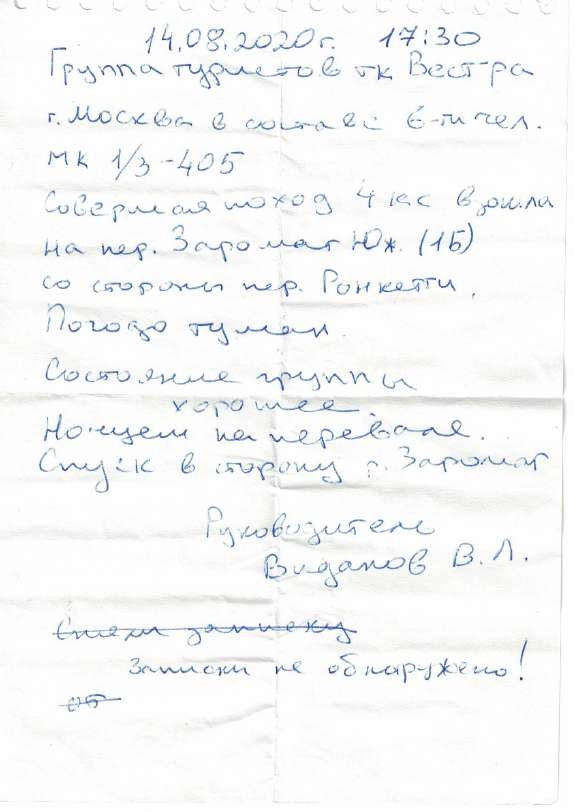 14.08.2020г. 17:30
Группа туристов тк Вест-ра
г. Москва в составе 6-ти чел.
МК 1/3-405
Совершая поход 4 кс взошла
на пер. Заромаг Юж. (1Б)
со стороны пер. Ронкетти.
Погода туман.
Состояние группы
хорошее.
Ночуем на перевале.
Спуск в сторону г. Заромаг
Руководитель
Видапов В. Л.
Снели записку
Записки не обнаружено!
об